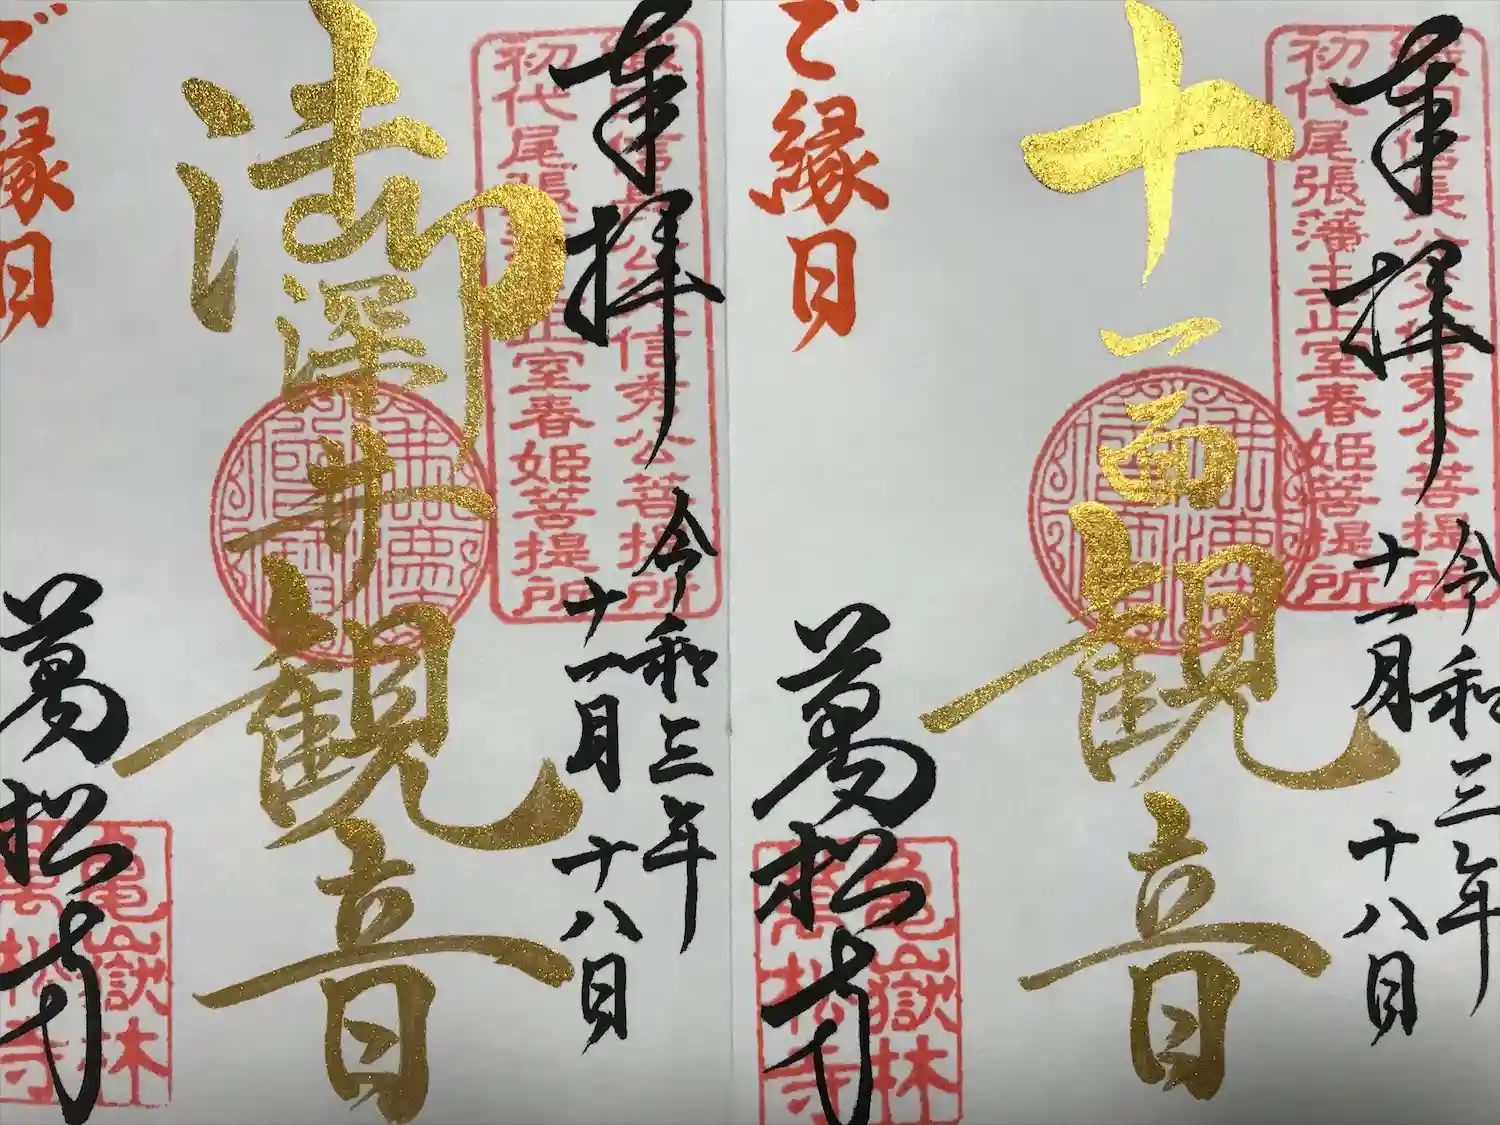 奉拝
令和三年
十一月十八日
織田信長公父信秀公菩提所
初代尾張藩主正室春姫菩提所
十一面観音
ご縁日
萬松寺
亀嶽林
萬松寺
奉拝
令和三年
十一月十八日
織田信長公父信秀公菩提所
初代尾張藩主正室春姫菩提所
御深井観音
ご縁日
萬松寺
亀嶽林
萬松寺